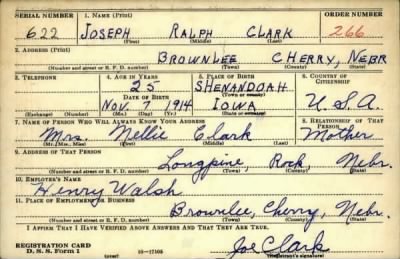 SERIAL NUMBER 1. NAME (Print) ORDER NUMBER
622 JOSEPH RALPH CLARK 266
(First) (Middle) (Last)
2. ADDRESS (Print)
BROWNLEE CHERRY, NEBR
(Number and street or R. F. D. number) (Town) (County) (State)
3. TELEPHONE 4. AGE IN YEARS 5. PLACE OF BIRTH 6. COUNTRY OF CITIZENSHIP
25 SHENANDOAH
DATE OF BIRTH (Town or county)
Nov. 7 1914 IOWA U.S.A.
(Exchange) (Number) (Mo.) (Day) (Yr.) (State or country)
7. NAME OF PERSON WHO WILL ALWAYS KNOW YOUR ADDRESS 8. RELATIONSHIP OF THAT PERSON
Mrs. Nellie Clark Mother
(Mr., Mrs., Miss) (First) (Middle) (Last)
9. ADDRESS OF THAT PERSON
Longpine, Rock, Nebr.
(Number and street or R. F. D. number) (Town) (County) (State)
10. EMPLOYER'S NAME
Henry Walsh
11. PLACE OF EMPLOYMENT OR BUSINESS
Brownlee, Cherry, Nebr.
(Number and street or R. F. D. number) (Town) (County) (State)
I AFFIRM THAT I HAVE VERIFIED ABOVE ANSWERS AND THAT THEY ARE TRUE.
Joe Clark
REGISTRATION CARD
D. S. S. Form 1 16-17105 (Registrant's signature)